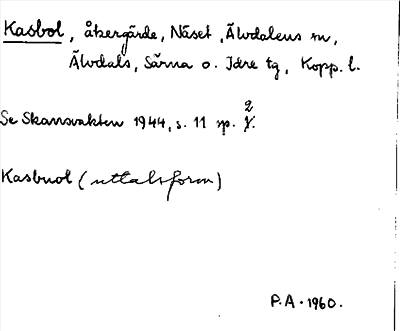 Kasbol, åkergärde, Näset, Älvdalens sn,
Älvdals, Särna o. Idre tg, Kopp. l.
Se Skansvakten 1944, s. 11 sp. 2.
Kasbuol (uttalsform)
P.A. 1960.